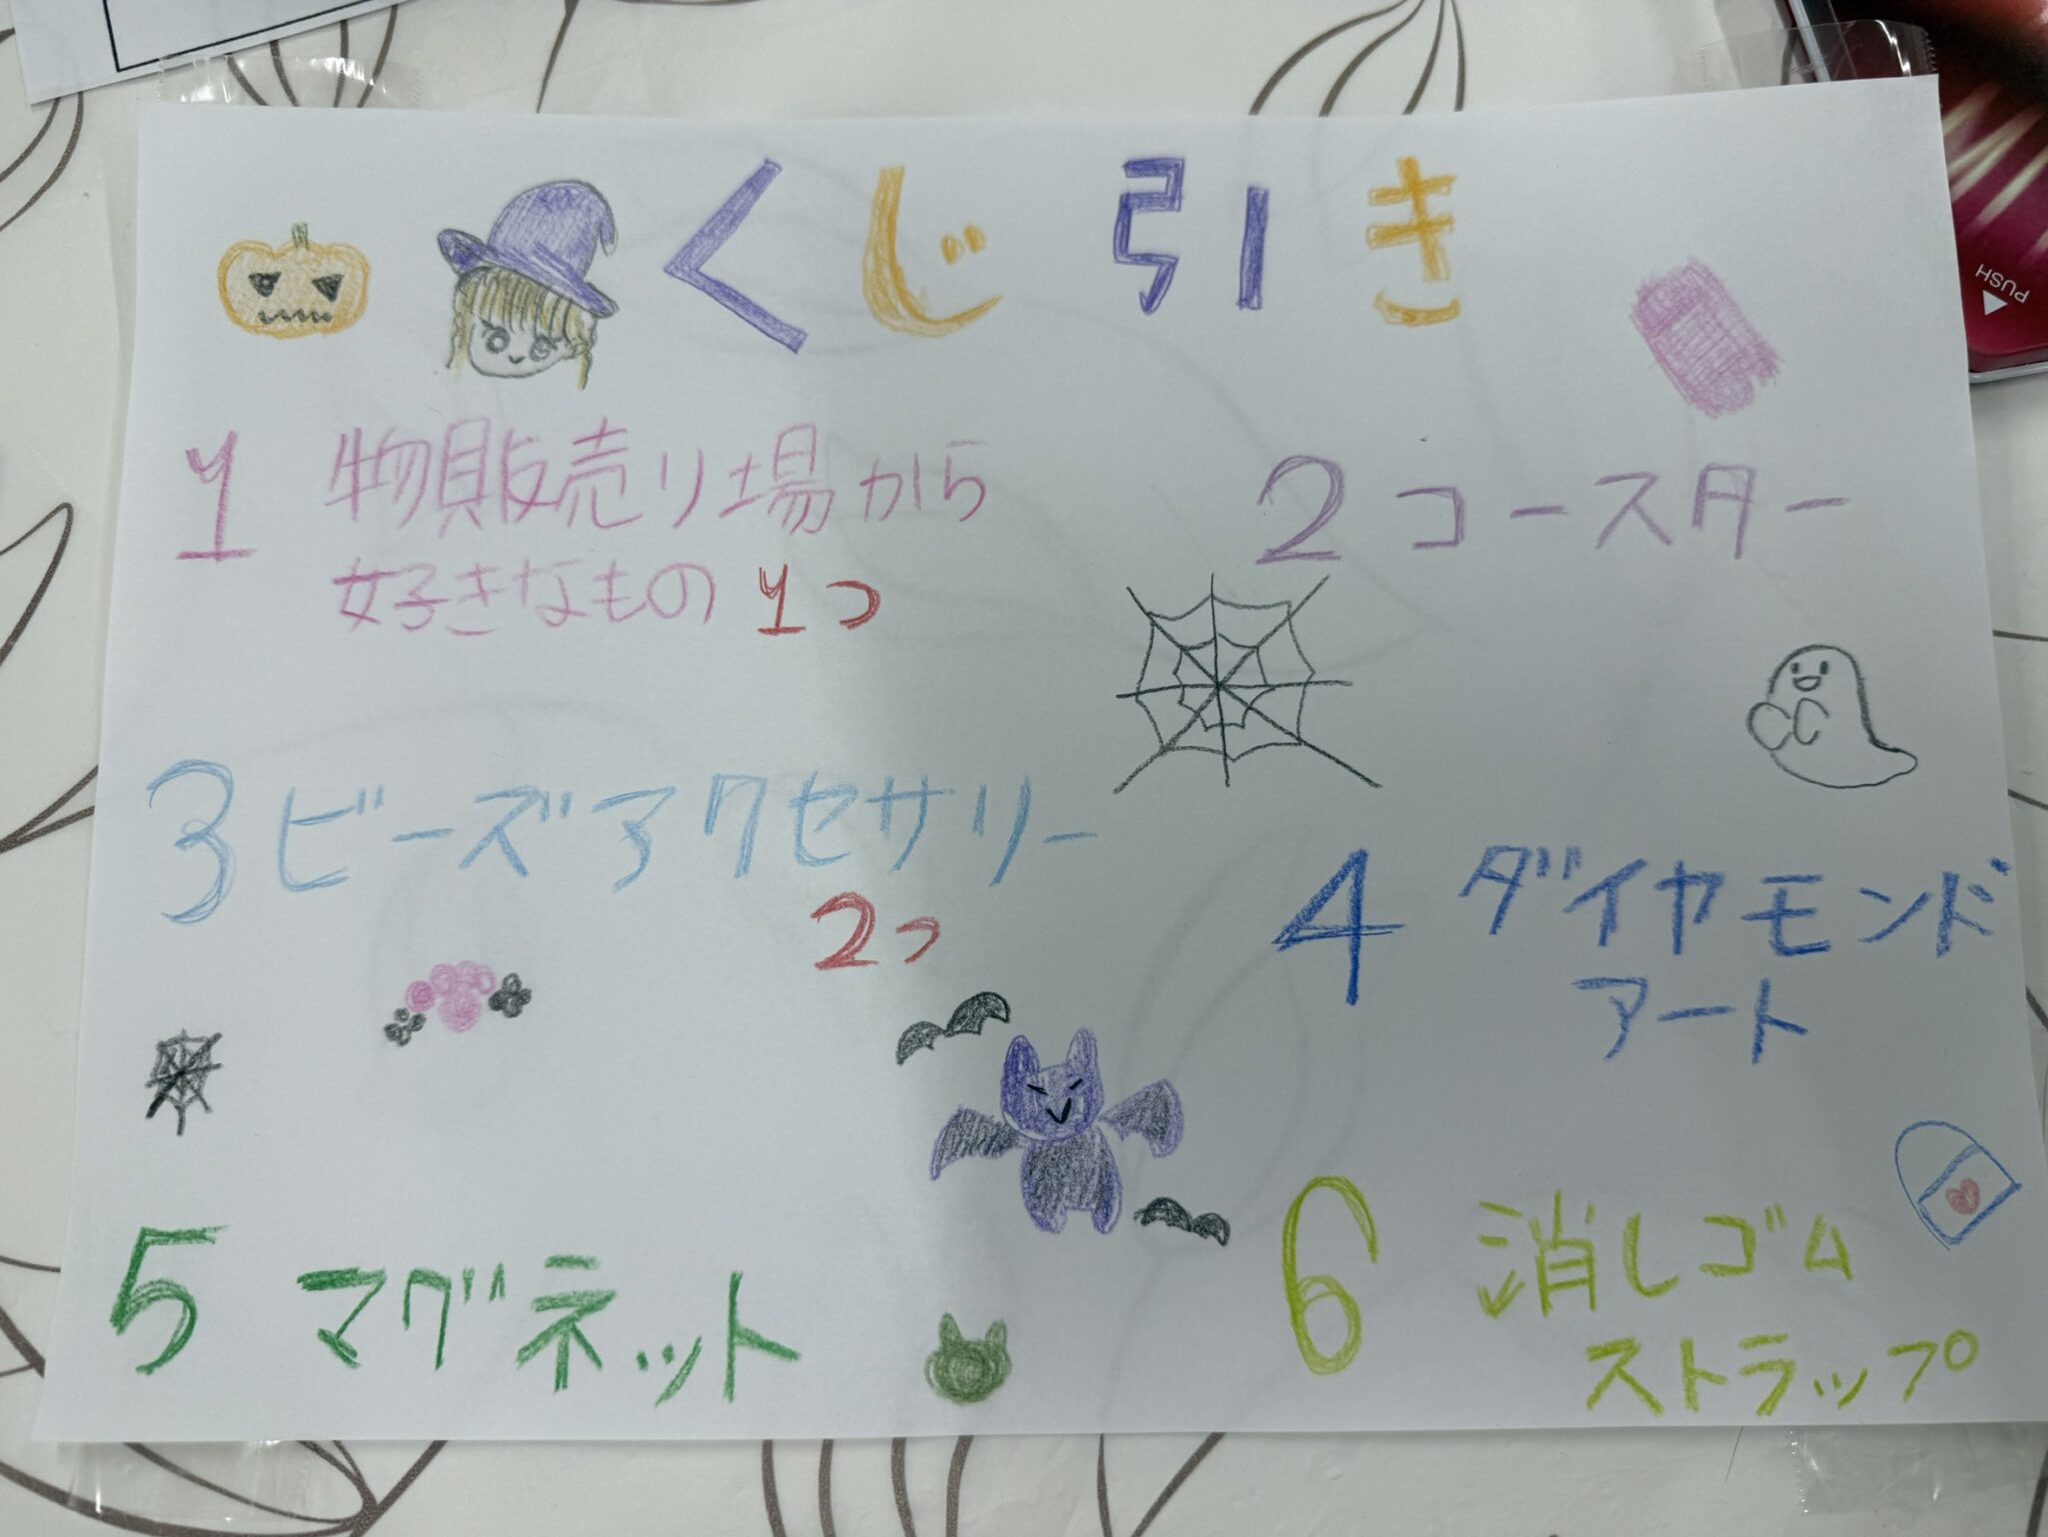 くじ引き
1 物販売り場から
好きなもの 1つ
2 コースター
3 ビーズアクセサリー
2つ
4 ダイヤモンド
アート
5 マグネット
6 消しゴム
ストラップ
PUSH